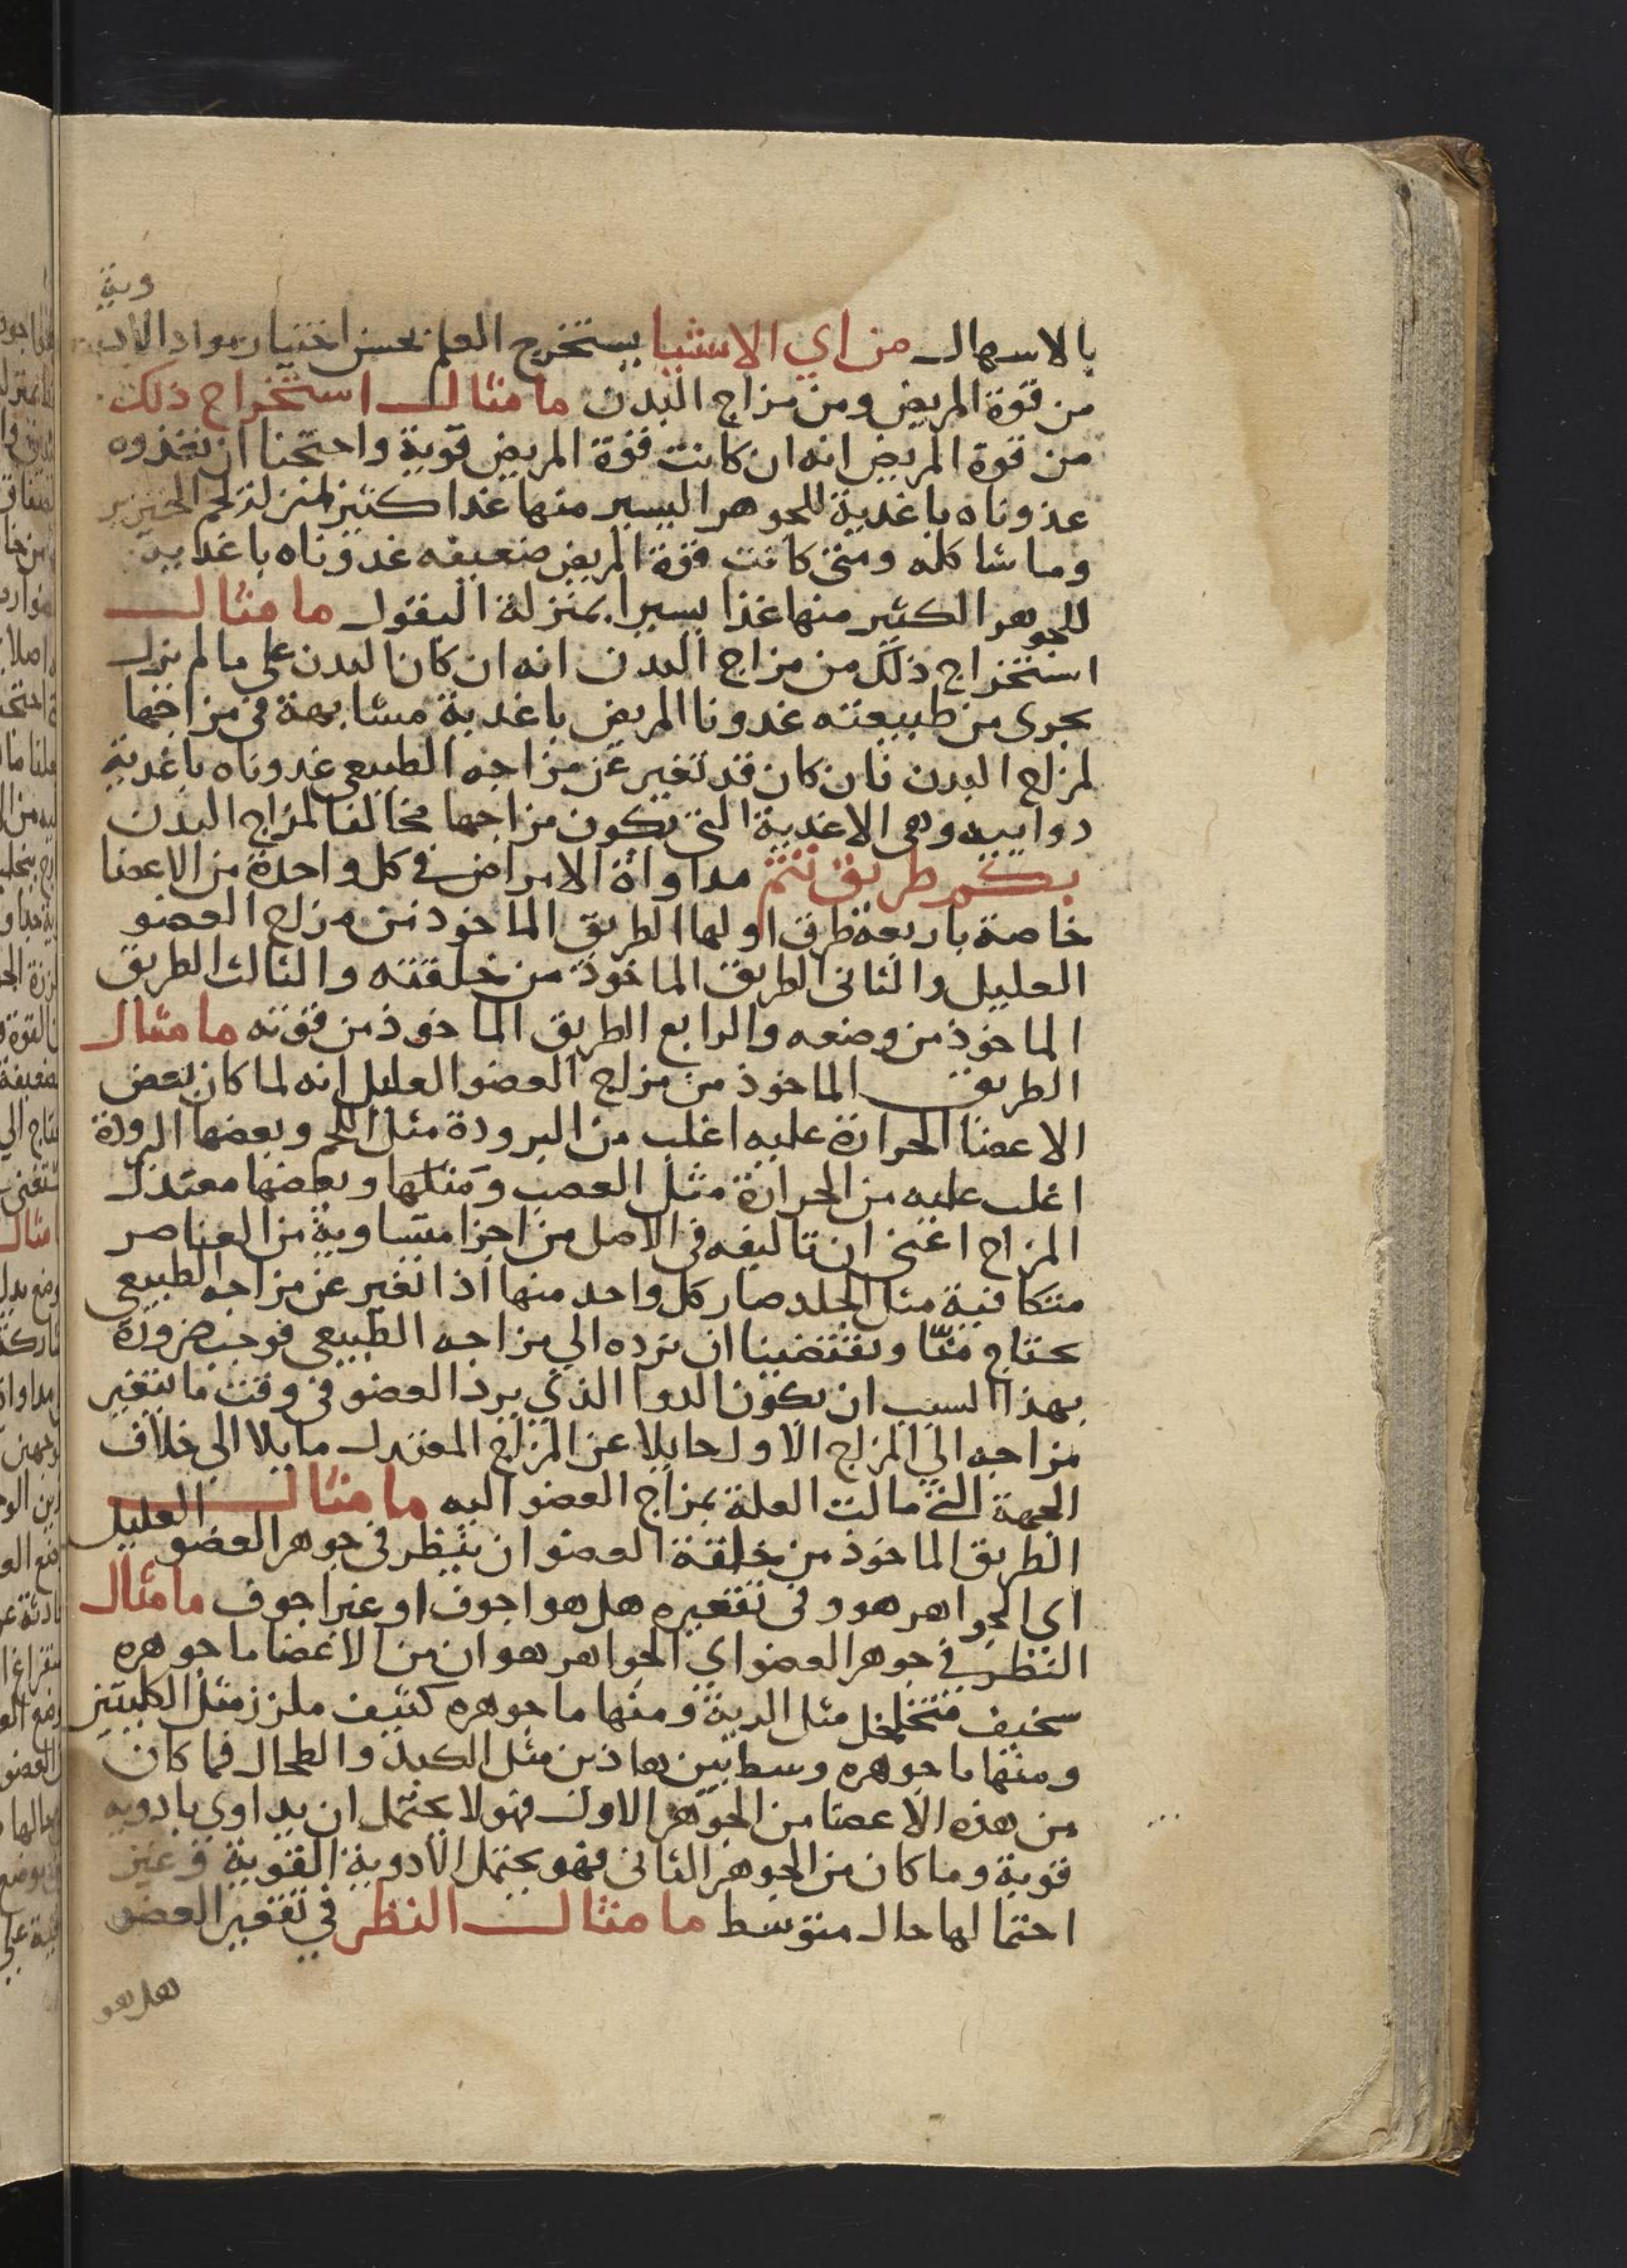 وية
بالاسهال من اي الاشيا يستخرج العلم بحسن اختيار مواد الاد
من قوة المريض ومن مزاج البدن ما مثال استخراج ذلك
من قوة المريض انه ان كانت قوة المريض قوية واحتجنا ان نغذوه
غذوناه باغدية للجوهر اليسير منها غدا كثير بمنزلة لحم الخنزير
وما شاكله ومتى كانت قوة المريض ضعيفه غدوناه باغدية
للجوهر الكثير منها غذا يسيرا بمنزلة البقول ما مثال
استخراج ذلك من مزاج البدن انه ان كان البدن على ما لم يزل
يجرى من طبيعته غدونا المريض باغدية مشابهة في مزاجها
لمزاج البدن فان كان قد تغير عن مزاجه الطبيعي غدوناه باغدية
دواييه وهى الاغدية التي يكون مزاجها مخالفا لمزاج البدن
بكم طريق تتم مداواة الامراض في كل واحدة من الاعضا
خاصة باربعة طرق اولها الطريق الماخوذ من مزاج العضو
العليل والثانى الطريق الماخوذ من خلقته والثالث الطريق
الماخوذ من وضعه والرابع الطريق الماخوذ من قوته ما مثال
الطريق الماخوذ من مزاج العضو العليل انه لما كان بعض
الاعضا الحرارة عليه اغلب من البرودة مثل اللحم وبعضها البرودة
اغلب عليه من الحرارة مثل العصب ومثلها وبعضها معتدل
المزاج اعني ان تاليفه في الاصل من اجزا متساوية من العناصر
متكافية مثل الجلد صار كل واحد منها اذا تغير عن مزاجه الطبيعي
يحتاج منّا ويقتضينا ان نرده الي مزاجه الطبيعي فوجب ضرورة
بهذا السبب ان يكون الدوا الذي يرد العضو في وقت ما يتغير
مزاجه الي المزاج الاول حايلا عن المزاج المعتدل مايلا الي خلاف
الجهة التي مالت العلة بمزاج العضو اليه ما مثال
الطريق الماخوذ من خلقة العضو ان ينظر في جوهر العضو العليل
اى الجواهر هو وفى تقعيره هل هو اجوف او غير اجوف ما مثال
النظر في جوهر العضو اي الجواهر هو ان من الاعضا ما جوهره
سخيف متخلخل مثل الرية ومنها ما جوهره كثيف ملزز مثل الكليتين
ومنها ما جوهره وسط بين هاذين مثل الكبد والطحال فما كان
من هذه الاعضا من الجوهر الاول فهو لا يحتمل ان يداوى بادويه
قوية وما كان من الجوهر الثانى فهو يحتمل الادوية القوية وعين
احتمالها حال متوسط ما مثال النظر في تقعير العضو
هل هو